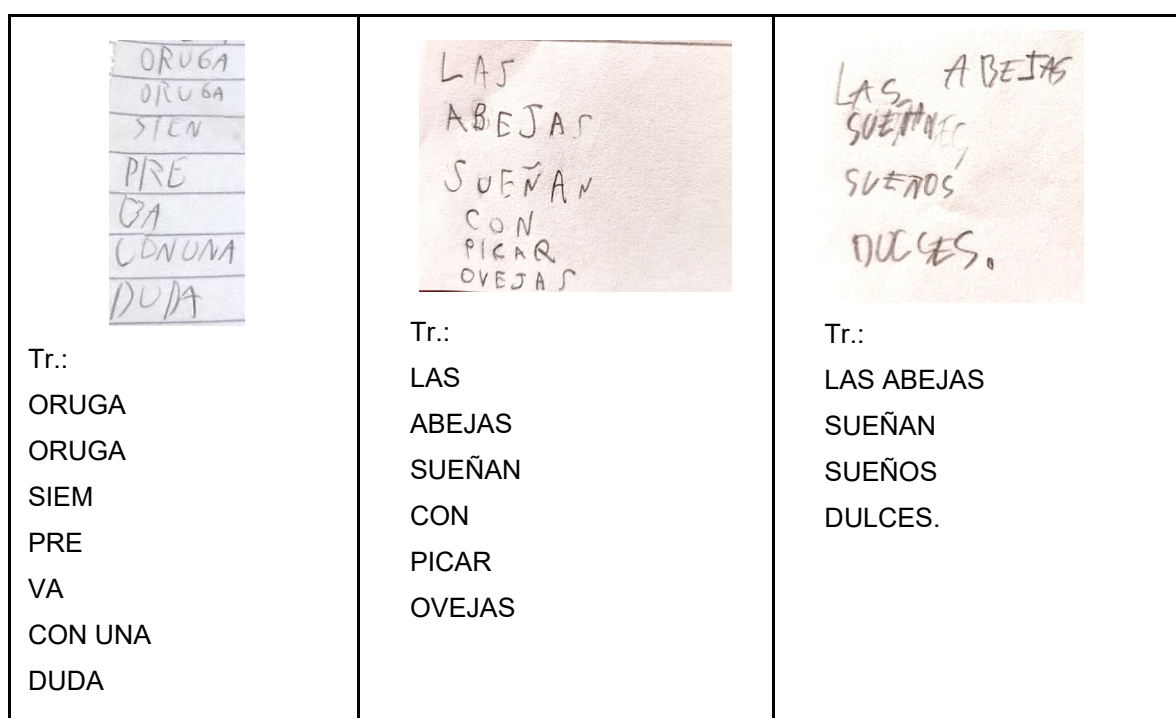 ORUGA
ORUGA
SIEN
PRE
BA
CON UNA
DUDA
Tr.:
ORUGA
ORUGA
SIEM
PRE
VA
CON UNA
DUDA
LAS
ABEJAS
SUEÑAN
CON
PICAR
OVEJAS
Tr.:
LAS
ABEJAS
SUEÑAN
CON
PICAR
OVEJAS
LAS ABEJAS
SUEÑOS
DULCES.
Tr.:
LAS ABEJAS
SUEÑAN
SUEÑOS
DULCES.